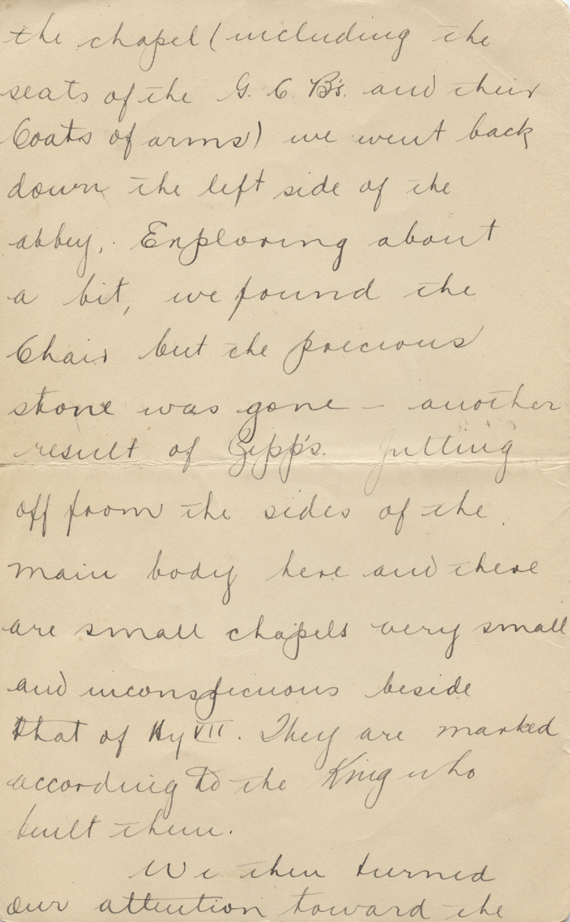 the chapel (including the
seats of the G. C. B's. and their
Coats of arms) we went back
down the left side of the
abbey,. Exploring about
a bit, we found the
Chair but the precious
stone was gone – another
result of Zepp's. Jutting
off from the sides of the
main body here and there
are small chapels very small
and inconspicuous beside
that of Hy VII. They are marked
according to the King who
built them.
We then turned
our attention toward the